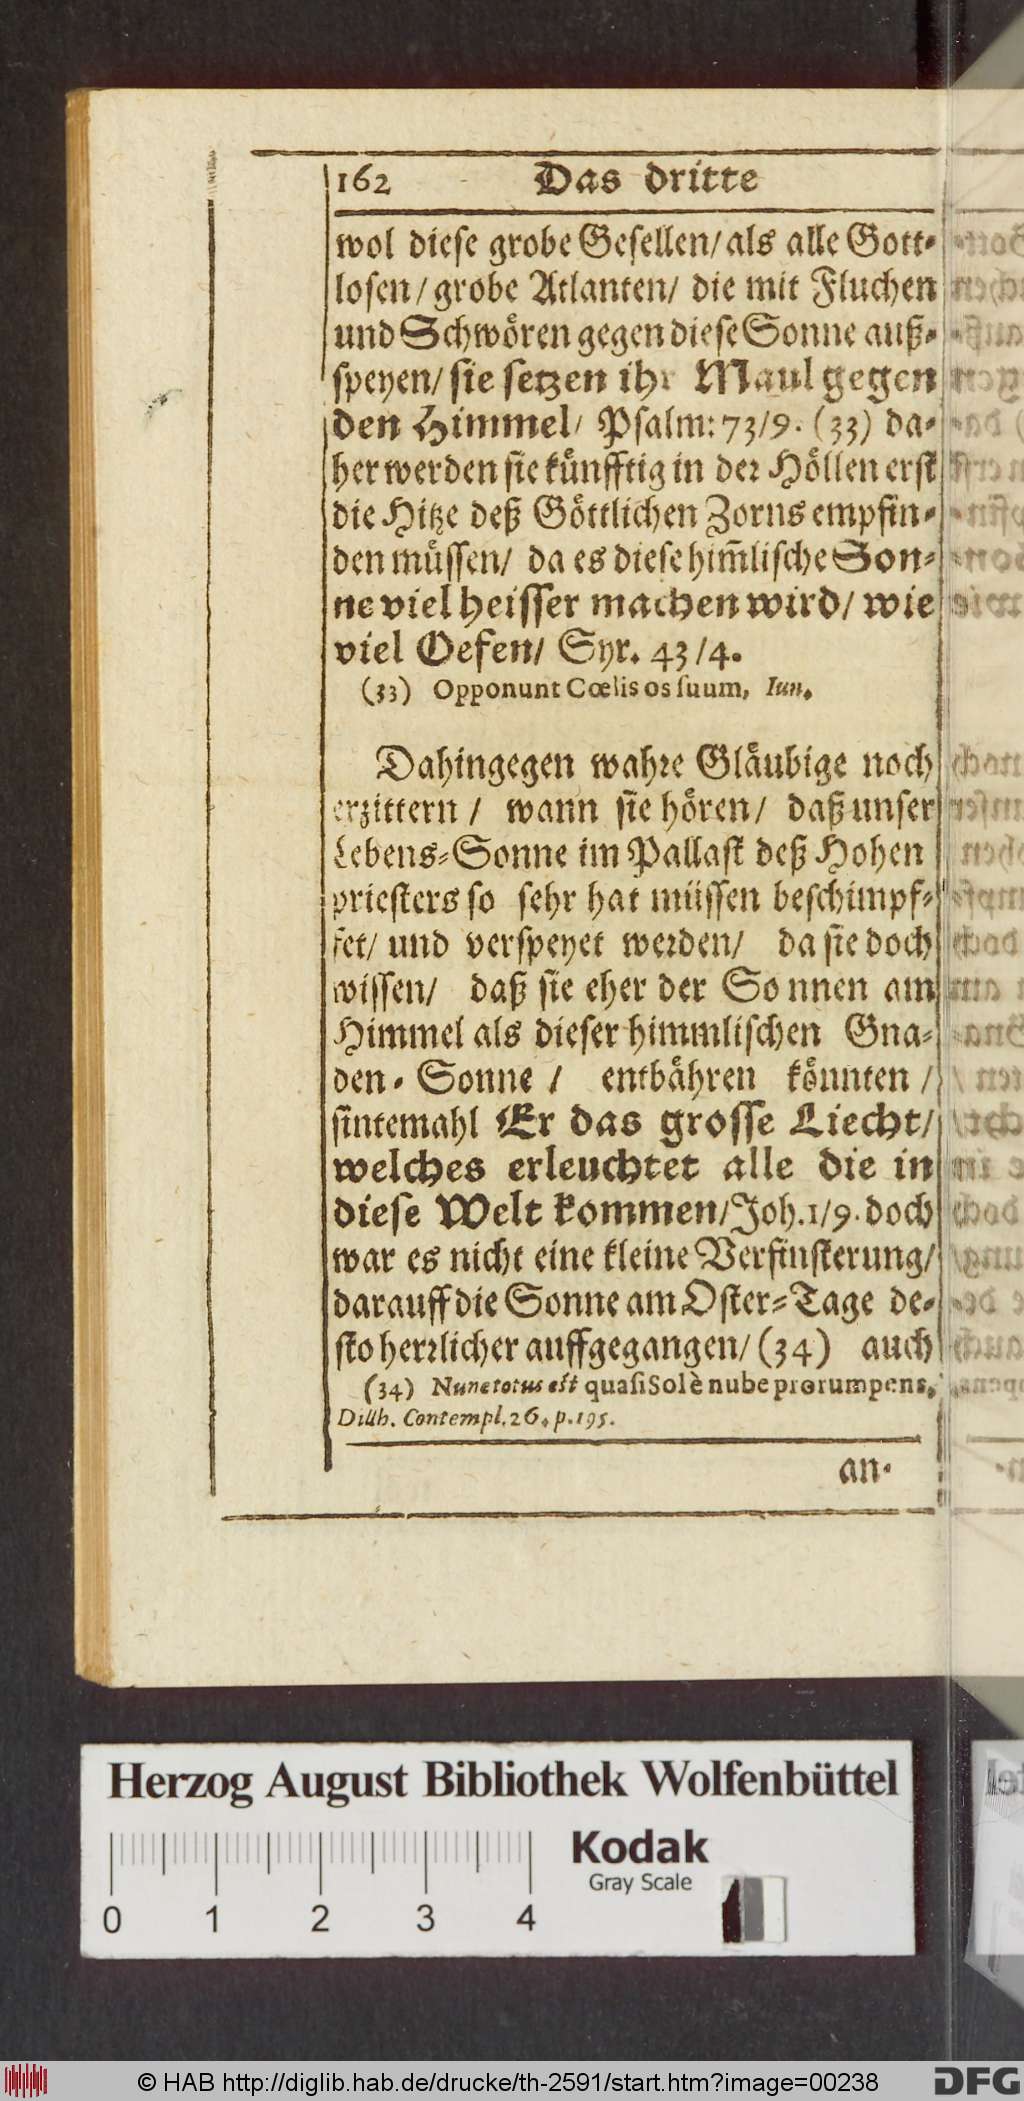 162 Das dritte
wol diese grobe Gesellen/ als alle Gott-
losen/ grobe Atlanten/ die mit Fluchen
und Schwören gegen diese Sonne auß-
speyen/ sie setzen ihr Maul gegen
den Himmel/ Psalm: 73/9. (33) da-
her werden sie künfftig in der Höllen erst
die Hitze deß Göttlichen Zorns empfin-
den müssen/ da es diese him̃lische Son-
ne viel heisser machen wird/ wie
viel Oefen/ Syr. 43/4.
(33) Opponunt Cœlis os suum, Iun.
Dahingegen wahre Gläubige noch
erzittern / wann sie hören/ daß unser
Lebens-Sonne im Pallast deß Hohen
priesters so sehr hat müssen beschimpf-
fet/ und verspeyet werden/ da sie doch
wissen/ daß sie eher der Sonnen am
Himmel als dieser himmlischen Gna-
den-Sonne / entbähren könnten /
sintemahl Er das grosse Liecht/
welches erleuchtet alle die in
diese Welt kommen/ Joh. 1/9. doch
war es nicht eine kleine Verfinsterung/
darauff die Sonne am Oster-Tage de-
sto herrlicher auffgegangen/ (34) auch
(34) Nunc totus est quasi Sol è nube prorumpens,
Dillh. Contempl. 26. p. 195.
an-
Herzog August Bibliothek Wolfenbüttel
Kodak
Gray Scale
0 1 2 3 4
© HAB http://diglib.hab.de/drucke/th-2591/start.htm?image=00238
DFG